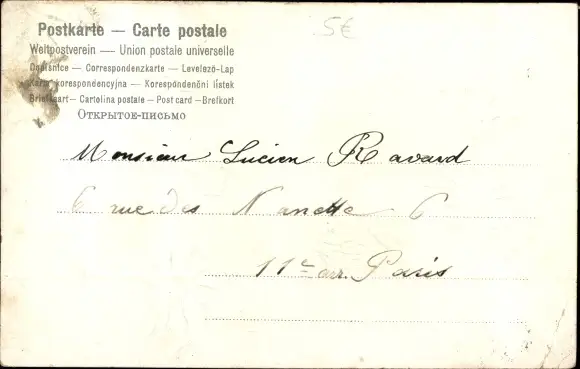 5€
Postkarte — Carte postale
Weltpostverein — Union postale universelle
Dopisnice — Correspondenzkarte — Levelező-Lap
Karta korespondencyjna — Korespondenční lístek
Briefkaart — Cartolina postale — Post card — Brefkort
Открытое-письмо
Monsieur Lucien Ravard
6 rue des Nanette 6
11e arr. Paris